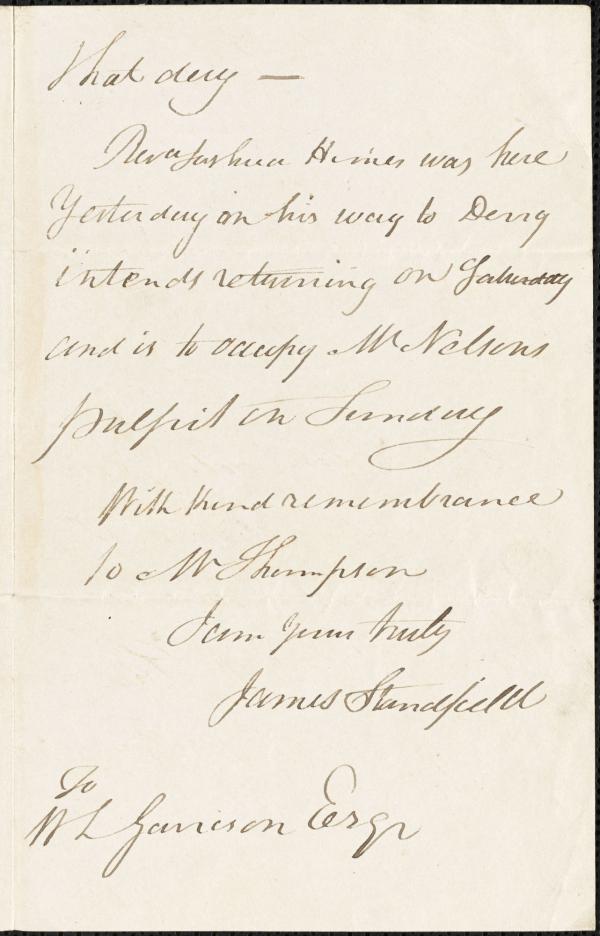 that day —
Revd Joshua Himes was here
Yesterday on his way to Derry
intends returning on Saturday
and is to occupy Mr Nelsons
pulpit on Sunday
With kind remembrance
to Mr Thompson
I am yours truly
James Standfield
To
W L Garrison Esqr